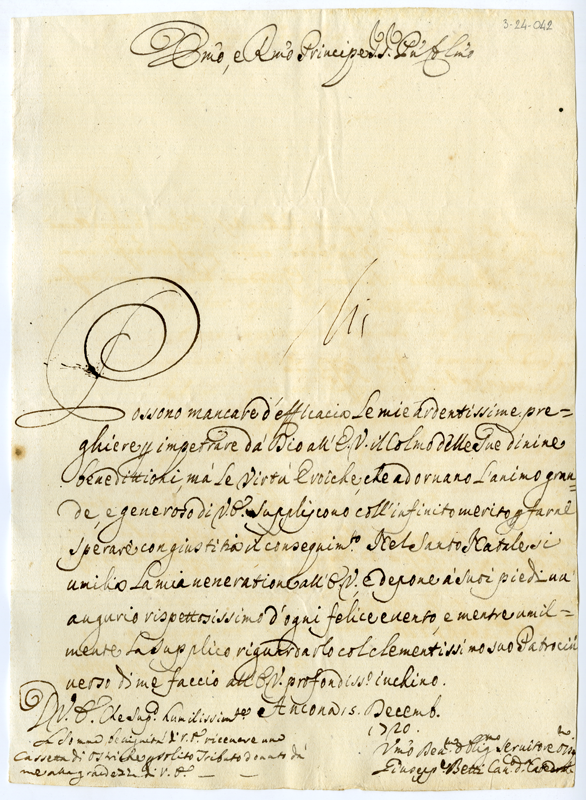 3-24-042
Em̃o, e Rm̃o Principe
Possono mancare d'efficacia le mie ardentissime pre=
ghiere p impetrare da Dio all' E.V. il Colmo delle Sue divine
benedittioni, mà le Virtù Eroiche, che adornano l'animo gran=
de, e generoso di V.E. suppliscono coll'infinito merito p farne
sperare con giustitia il conseguim.to Nel Santo Natale si
umilia la mia veneratione all' E.V. e depone à Suoi piedi un'
augurio rispettosissimo d'ogni felice evento, e mentre umil=
mente la supplico riguardarlo col clementissimo suo Patrocinio
verso di me faccio all' E.V. profondiss.o inchino.
D V. E. Che sup.a humilissim.te Ancona 15. Decemb.
1720.
la somma benignità di V.E. ricevere una
Cassetta di Ostriche
di V.E.
Um̃o Servitore
Giusepe Betti